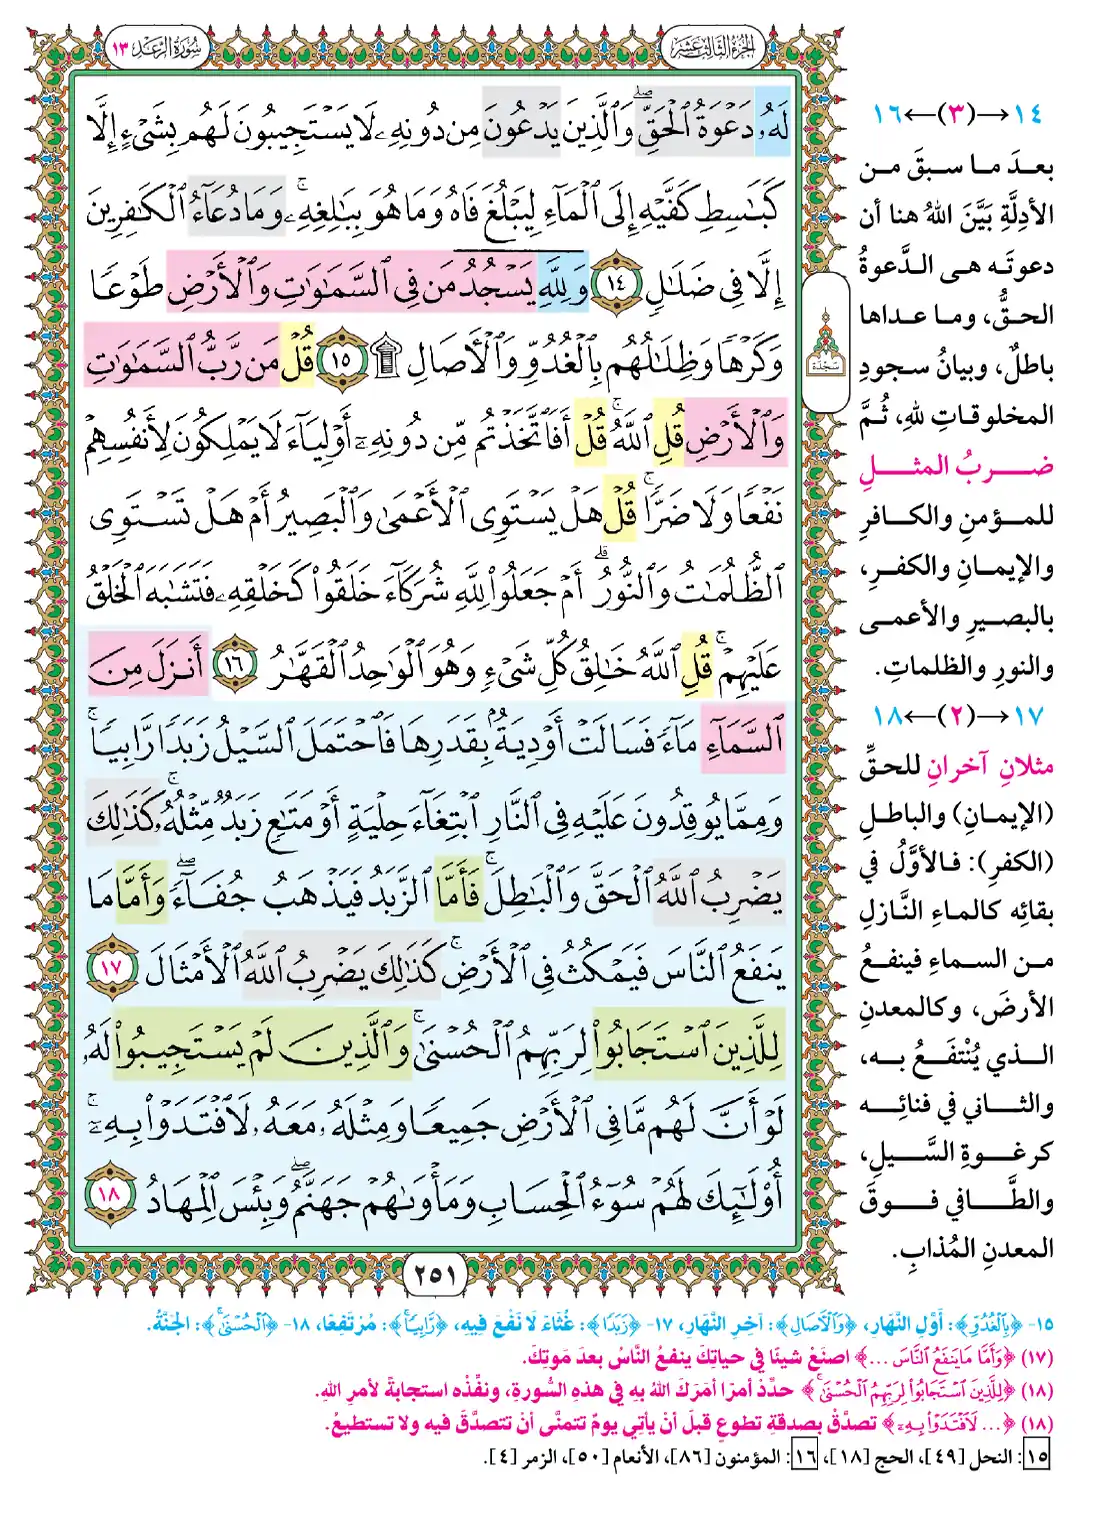 الجزء الثالث عشر
سورة الرعد ١٣
لَهُۥ دَعۡوَةُ ٱلۡحَقِّۖ وَٱلَّذِينَ يَدۡعُونَ مِن دُونِهِۦ لَا يَسۡتَجِيبُونَ لَهُم بِشَيۡءٍ إِلَّا
كَبَٰسِطِ كَفَّيۡهِ إِلَى ٱلۡمَآءِ لِيَبۡلُغَ فَاهُ وَمَا هُوَ بِبَٰلِغِهِۦۚ وَمَا دُعَآءُ ٱلۡكَٰفِرِينَ
إِلَّا فِي ضَلَٰلٖ ١٤ وَلِلَّهِۤ يَسۡجُدُۤ مَن فِي ٱلسَّمَٰوَٰتِ وَٱلۡأَرۡضِ طَوۡعٗا
وَكَرۡهٗا وَظِلَٰلُهُم بِٱلۡغُدُوِّ وَٱلۡأٓصَالِ ۩ ١٥ قُلۡ مَن رَّبُّ ٱلسَّمَٰوَٰتِ
وَٱلۡأَرۡضِ قُلِ ٱللَّهُۚ قُلۡ أَفَٱتَّخَذۡتُم مِّن دُونِهِۦٓ أَوۡلِيَآءَ لَا يَمۡلِكُونَ لِأَنفُسِهِمۡ
نَفۡعٗا وَلَا ضَرّٗاۚ قُلۡ هَلۡ يَسۡتَوِي ٱلۡأَعۡمَىٰ وَٱلۡبَصِيرُ أَمۡ هَلۡ تَسۡتَوِي
ٱلظُّلُمَٰتُ وَٱلنُّورُۗ أَمۡ جَعَلُواْ لِلَّهِ شُرَكَآءَ خَلَقُواْ كَخَلۡقِهِۦ فَتَشَٰبَهَ ٱلۡخَلۡقُ
عَلَيۡهِمۡۚ قُلِ ٱللَّهُ خَٰلِقُ كُلِّ شَيۡءٖ وَهُوَ ٱلۡوَٰحِدُ ٱلۡقَهَّٰرُ ١٦ أَنزَلَ مِنَ
ٱلسَّمَآءِ مَآءٗ فَسَالَتۡ أَوۡدِيَةُۢ بِقَدَرِهَا فَٱحۡتَمَلَ ٱلسَّيۡلُ زَبَدٗا رَّابِيٗاۚ
وَمِمَّا يُوقِدُونَ عَلَيۡهِ فِي ٱلنَّارِ ٱبۡتِغَآءَ حِلۡيَةٍ أَوۡ مَتَٰعٖ زَبَدٞ مِّثۡلُهُۥۚ كَذَٰلِكَ
يَضۡرِبُ ٱللَّهُ ٱلۡحَقَّ وَٱلۡبَٰطِلَۚ فَأَمَّا ٱلزَّبَدُ فَيَذۡهَبُ جُفَآءٗۖ وَأَمَّا مَا
يَنفَعُ ٱلنَّاسَ فَيَمۡكُثُ فِي ٱلۡأَرۡضِۚ كَذَٰلِكَ يَضۡرِبُ ٱللَّهُ ٱلۡأَمۡثَالَ ١٧
لِلَّذِينَ ٱسۡتَجَابُواْ لِرَبِّهِمُ ٱلۡحُسۡنَىٰۚ وَٱلَّذِينَ لَمۡ يَسۡتَجِيبُواْ لَهُۥ
لَوۡ أَنَّ لَهُم مَّا فِي ٱلۡأَرۡضِ جَمِيعٗا وَمِثۡلَهُۥ مَعَهُۥ لَٱفۡتَدَوۡاْ بِهِۦٓۚ
أُوْلَٰٓئِكَ لَهُمۡ سُوٓءُ ٱلۡحِسَابِ وَمَأۡوَىٰهُمۡ جَهَنَّمُۖ وَبِئۡسَ ٱلۡمِهَادُ ١٨
سجدة
٢٥١
١٤→(٣)←١٦
بعدَ ما سبقَ من
الأدِلَّةِ بَيَّنَ اللهُ هنا أن
دعوتَه هى الدَّعوةُ
الحقُّ، وما عداها
باطلٌ، وبيانُ سجودِ
المخلوقاتِ للهِ، ثُمَّ
ضربُ المثلِ
للمؤمنِ والكافرِ
والإيمانِ والكفرِ،
بالبصيرِ والأعمى
والنورِ والظلماتِ.
١٧→(٢)←١٨
مثلانِ آخرانِ للحقِّ
(الإيمانِ) والباطلِ
(الكفرِ): فالأوَّلُ في
بقائِه كالماءِ النَّازلِ
من السماءِ فينفعُ
الأرضَ، وكالمعدنِ
الذي يُنْتَفَعُ به،
والثاني في فنائِه
كرغوةِ السَّيلِ،
والطَّافي فوقَ
المعدنِ المُذابِ.
١٥- ﴿بِٱلۡغُدُوِّ﴾: أوَّلِ النَّهارِ، ﴿وَٱلۡأٓصَالِ﴾: آخِرِ النَّهارِ، ١٧- ﴿زَبَدٗا﴾: غُثَاءً لَا نَفْعَ فِيهِ، ﴿رَّابِيٗاۚ﴾: مُرْتَفِعًا، ١٨- ﴿ٱلۡحُسۡنَىٰۚ﴾: الجَنَّةُ.
(١٧) ﴿وَأَمَّا مَا يَنفَعُ ٱلنَّاسَ ...﴾ اصنَعْ شيئًا في حياتِكَ ينفعُ النَّاسُ بعدَ مَوتِكَ.
(١٨) ﴿لِلَّذِينَ ٱسۡتَجَابُواْ لِرَبِّهِمُ ٱلۡحُسۡنَىٰۚ﴾ حدِّدْ أمرًا أمَرَكَ اللهُ بِهِ في هذِهِ السُّورةِ، ونفِّذْه استجابةً لأمرِ اللهِ.
(١٨) ﴿... لَٱفۡتَدَوۡاْ بِهِۦٓ﴾ تصدَّقْ بصدقةِ تطوعٍ قبلَ أنْ يأتِي يومٌ تتمنَّى أنْ تتصدَّقَ فيه ولا تستطيعُ.
١٥: النحل [٤٩]، الحج [١٨]، ١٦: المؤمنون [٨٦]، الأنعام [٥٠]، الزمر [٤].